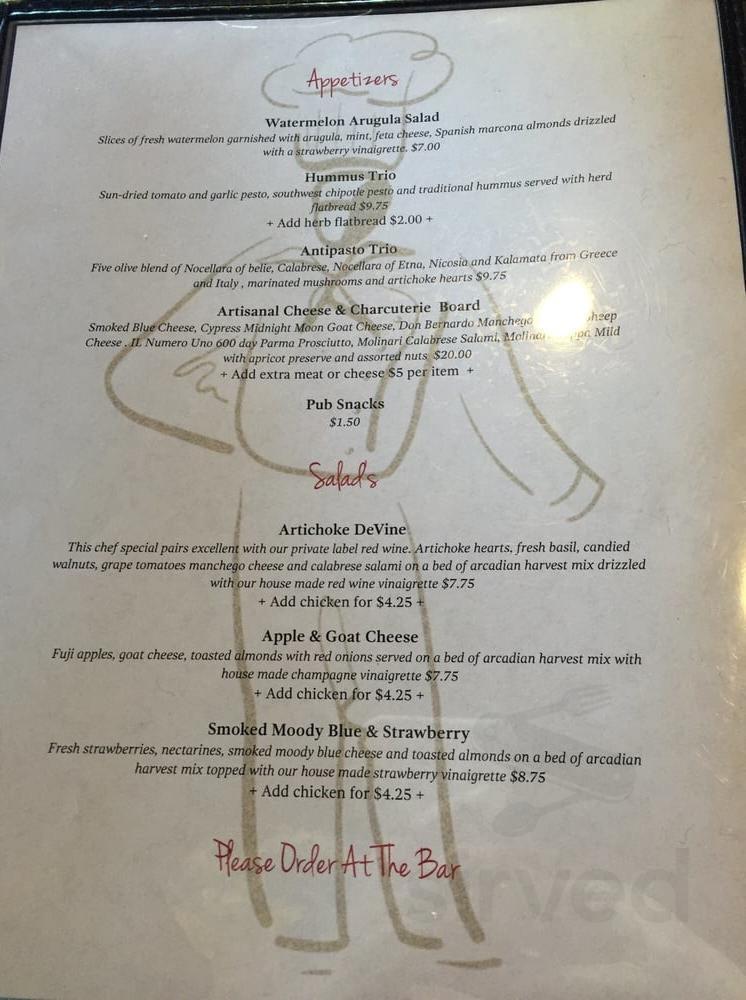 Appetizers
Watermelon Arugula Salad
Slices of fresh watermelon garnished with arugula, mint, feta cheese, Spanish marcona almonds drizzled
with a strawberry vinaigrette. $7.00
Hummus Trio
Sun-dried tomato and garlic pesto, southwest chipotle pesto and traditional hummus served with herd
flatbread $9.75
+ Add herb flatbread $2.00 +
Antipasto Trio
Five olive blend of Nocellara of belie, Calabrese, Nocellara of Etna, Nicosia and Kalamata from Greece
and Italy , marinated mushrooms and artichoke hearts $9.75
Artisanal Cheese & Charcuterie Board
Smoked Blue Cheese, Cypress Midnight Moon Goat Cheese, Don Bernardo Manchego sheep
Cheese . IL Numero Uno 600 day Parma Prosciutto, Molinari Calabrese Salami, Mild
with apricot preserve and assorted nuts $20.00
+ Add extra meat or cheese $5 per item +
Pub Snacks
$1.50
Salads
Artichoke DeVine
This chef special pairs excellent with our private label red wine. Artichoke hearts. fresh basil, candied
walnuts, grape tomatoes manchego cheese and calabrese salami on a bed of arcadian harvest mix drizzled
with our house made red wine vinaigrette $7.75
+ Add chicken for $4.25 +
Apple & Goat Cheese
Fuji apples, goat cheese, toasted almonds with red onions served on a bed of arcadian harvest mix with
house made champagne vinaigrette $7.75
+ Add chicken for $4.25 +
Smoked Moody Blue & Strawberry
Fresh strawberries, nectarines, smoked moody blue cheese and toasted almonds on a bed of arcadian
harvest mix topped with our house made strawberry vinaigrette $8.75
+ Add chicken for $4.25 +
Please Order At The Bar
sirved